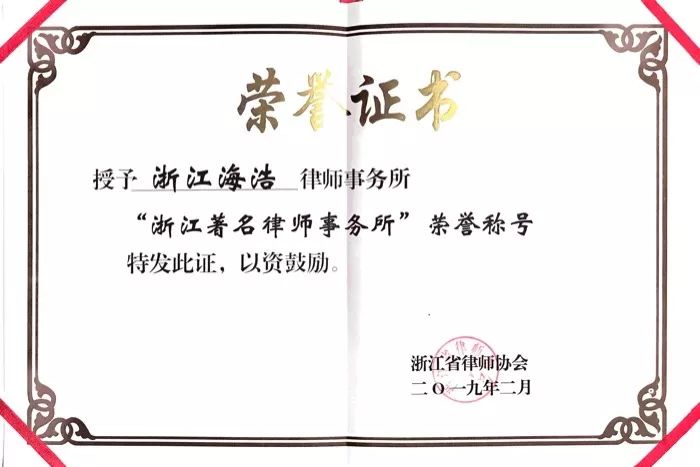 荣誉证书
授予 浙江海浩 律师事务所
“浙江著名律师事务所”荣誉称号
特发此证，以资鼓励。
浙江省律师协会
二〇一九年二月